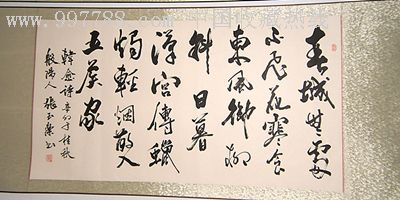 www.997788.com中国收藏热线
春城無處
不飛花寒食
東風御柳
斜日暮
漢宮傳蠟
燭輕烟散入
五侯家
韓愈詩辛卯年桂秋
般陽人張玉